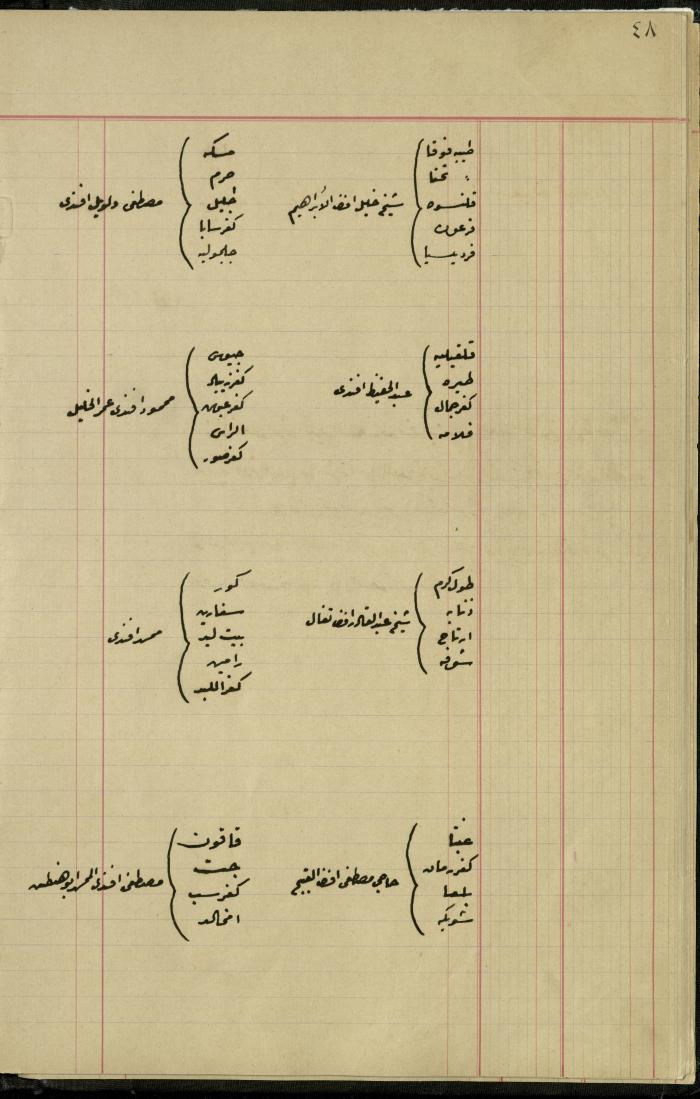 ٤٨
طيبه فوقا
〃 تحتا
قلنسوه
فرعون
فرديسيا
شيخ خليل افندي الابراهيم
مسكه
حرم
اجليل
كفرسابا
جلجوليه
مصطفى افندى
قلقيليه
طيره
كفرجمال
فلامه
عبد الحفيظ افندى
جيوس
كفرزيباد
كفرعبوش
الراس
كفرصور
محمود افندى عمر الخليل
طولكرم
ذنابه
ارتاح
شوفه
شيخ عبد القادر افندي تفال
كور
سفارين
بيت ليد
رامين
كفراللبد
محمد افندى
عنبتا
كفررمان
بلعا
شويكه
حاجي مصطفى افندي القبج
قاقون
جت
كفرسب
ام خالد
مصطفى افندى المحمد ابو هنطش